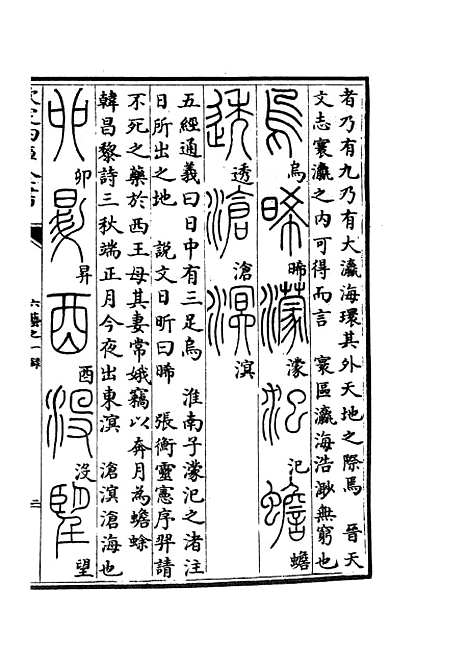 者乃有九乃有大瀛海環其外天地之際焉　晉天
文志寰瀛之内可得而言　寰區瀛海浩渺無窮也
烏烏晞晞濛濛汜汜蟾蟾
透透滄滄溟溟
五經通義曰日中有三足烏　淮南子濛汜之渚注
日所出之地　説文日昕曰晞　張衡靈憲序羿請
不死之藥於西王母其妻常娥竊以奔月為蟾蜍
韓昌黎詩三秋端正月今夜出東溟　滄溟滄海也
卯卯昇昇酉酉没没望望
六藝之一録